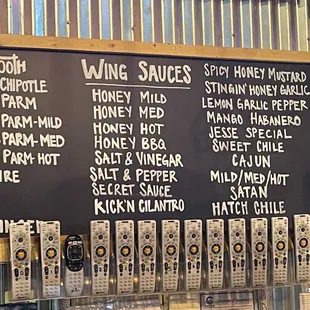 OOTH
CHIPOTLE
PARM
PARM-MILD
PARM-MED
PARM-HOT
IRE
WING SAUCES
HONEY MILD
HONEY MED
HONEY HOT
HONEY BBQ
SALT & VINEGAR
SALT & PEPPER
SECRET SAUCE
KICK'N CILANTRO
SPICY HONEY MUSTARD
STINGIN' HONEY GARLIC
LEMON GARLIC PEPPER
MANGO HABANERO
JESSE SPECIAL
SWEET CHILE
CAJUN
MILD/MED/HOT
SATAN
HATCH CHILE